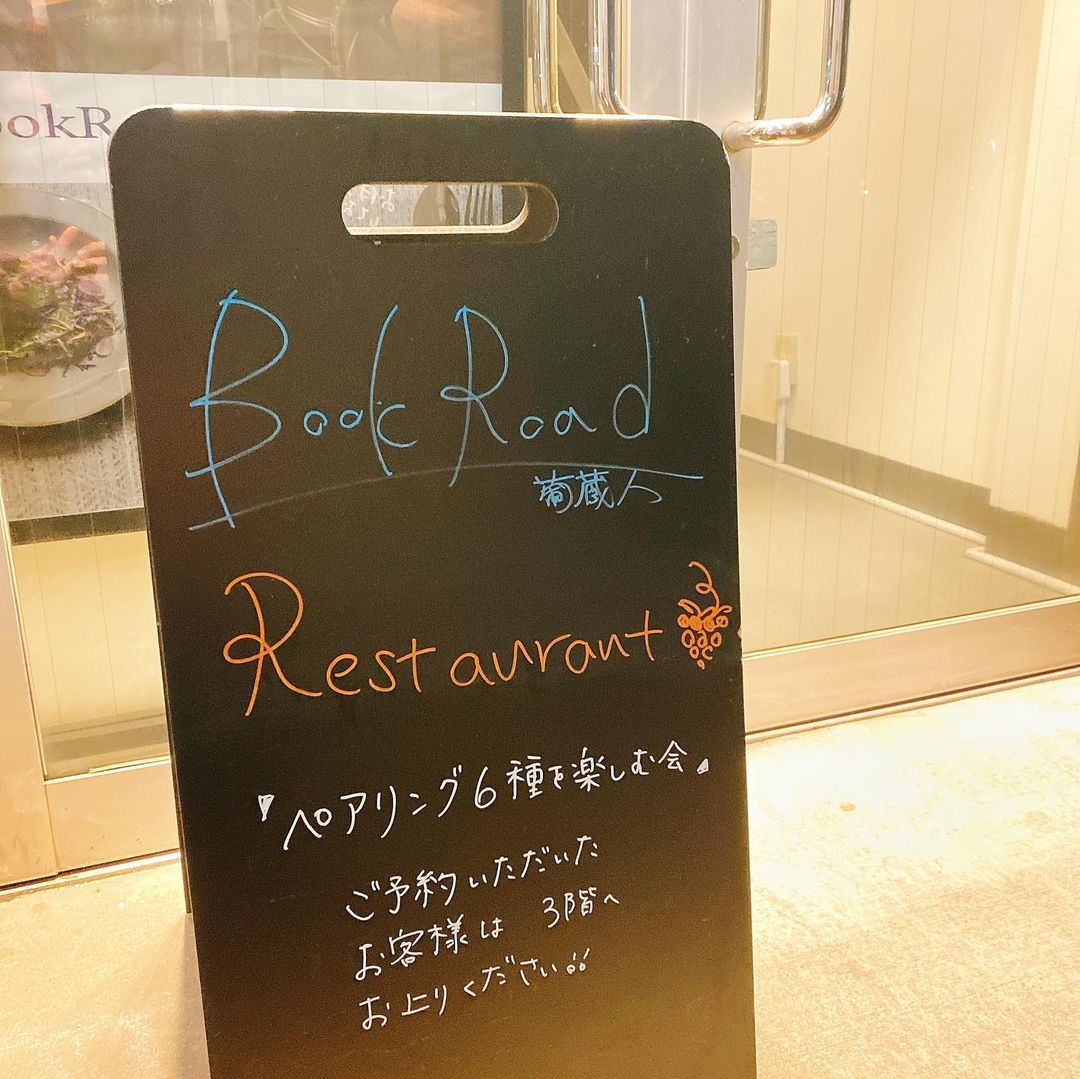 ookR
Book Road
葡蔵人
Restaurant
『ペアリング6種を楽しむ会』
ご予約いただいた
お客様は 3階へ
お上りください!!